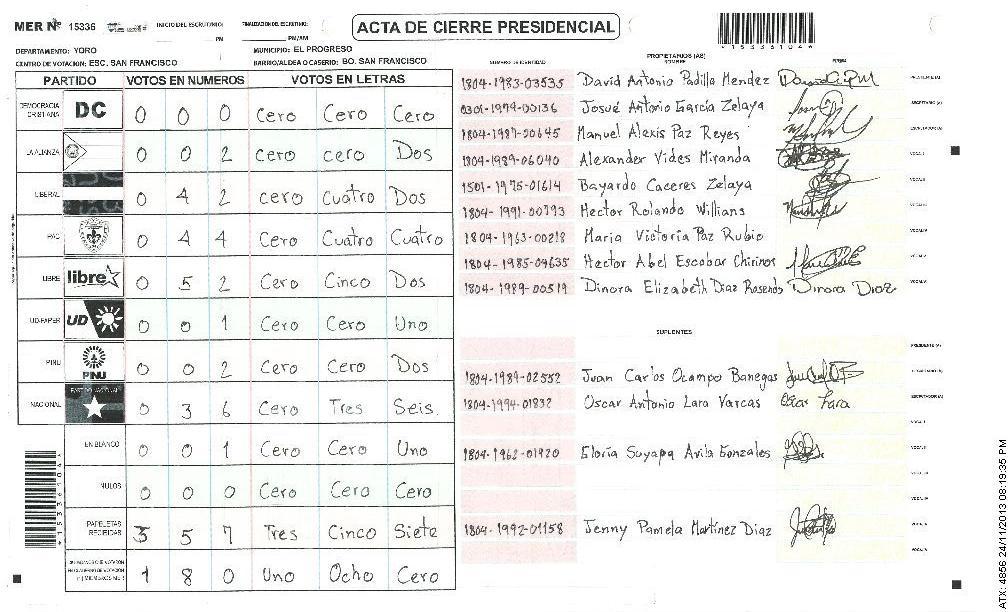 MER Nº 15336 INICIO DEL ESCRUTINIO: PM FINALIZACION DEL ESCRUTINIO: PM/AM
ACTA DE CIERRE PRESIDENCIAL
*153361046*
DEPARTAMENTO: YORO MUNICIPIO: EL PROGRESO
CENTRO DE VOTACION: ESC. SAN FRANCISCO BARRIO/ALDEA O CASERIO: BO. SAN FRANCISCO
PARTIDO VOTOS EN NUMEROS VOTOS EN LETRAS
DEMOCRACIA CRISTIANA DC 0 0 0 Cero Cero Cero
LA ALIANZA 0 0 2 cero cero Dos
LIBERAL 0 4 2 cero Cuatro Dos
PAC 0 4 4 Cero Cuatro Cuatro
LIBRE libre 0 5 2 Cero Cinco Dos
UD-FAPER UD 0 0 1 Cero Cero Uno
PINU PINU 0 0 2 Cero Cero Dos
NACIONAL PARTIDO NACIONAL 0 3 6 Cero Tres Seis.
EN BLANCO 0 0 1 Cero Cero Uno
NULOS 0 0 0 Cero Cero Cero
PAPELETAS RECIBIDAS 3 5 7 Tres Cinco Siete
1 8 0 Uno Ocho Cero
PROPIETARIOS (AS)
NUMERO DE IDENTIDAD NOMBRE FIRMA
1804-1983-03535 David Antonio Padilla Mendez PRESIDENTE (A)
0301-1979-00136 Josué Antonio García Zelaya SECRETARIO (A)
1804-1987-00645 Manuel Alexis Paz Reyes ESCRUTADOR (A)
1804-1989-06040 Alexander Vides Miranda VOCAL I
1501-1975-01614 Bayardo Caceres Zelaya VOCAL II
1804-1991-00793 Hector Rolando Willians VOCAL III
1804-1963-00218 Maria Victoria Paz Rubio VOCAL IV
1804-1985-04635 Hector Abel Escobar Chirinos VOCAL V
1804-1989-00519 Dinora Elizabeth Diaz Rosendo Dinora Diaz VOCAL VI
SUPLENTES
PRESIDENTE (A)
1804-1989-02552 Juan Carlos Ocampo Banegas SECRETARIO (A)
1804-1994-01832 Oscar Antonio Lara Varcas Oscar Lara ESCRUTADOR (A)
VOCAL I
1804-1962-01920 Gloria Suyapa Avila Gonzales VOCAL II
VOCAL III
VOCAL IV
1804-1992-01158 Jenny Pamela Martínez Diaz VOCAL V
VOCAL VI
ATX: 4856 24/11/2013 08:19:35 PM